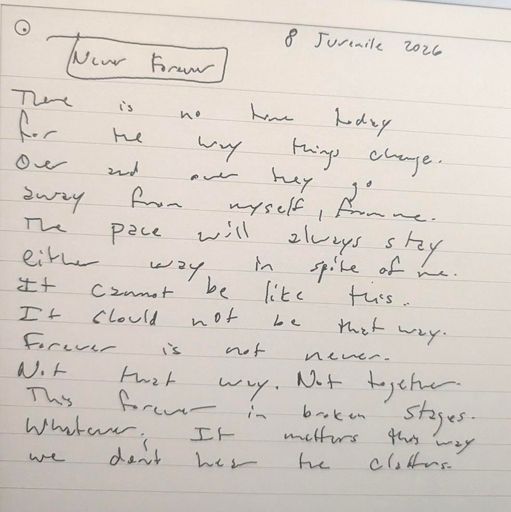 8 Juvenile 2026
Never Forever
There is no time today
for the way things change.
Over and over they go
away from myself, from me.
The pace will always stay
either way in spite of me.
It cannot be like this.
It should not be that way.
Forever is not never.
Not that way. Not together.
This forever in broken stages.
Whatever, It matters this way
we don't hear the